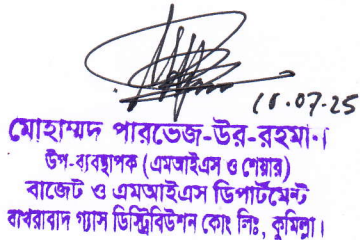 ১৫.০৭.২৫
মোহাম্মদ পারভেজ-উর-রহমান
উপ-ব্যবস্থাপক (এমআইএস ও শেয়ার)
বাজেট ও এমআইএস ডিপার্টমেন্ট
বাখরাবাদ গ্যাস ডিস্ট্রিবিউশন কোং লিঃ, কুমিল্লা।